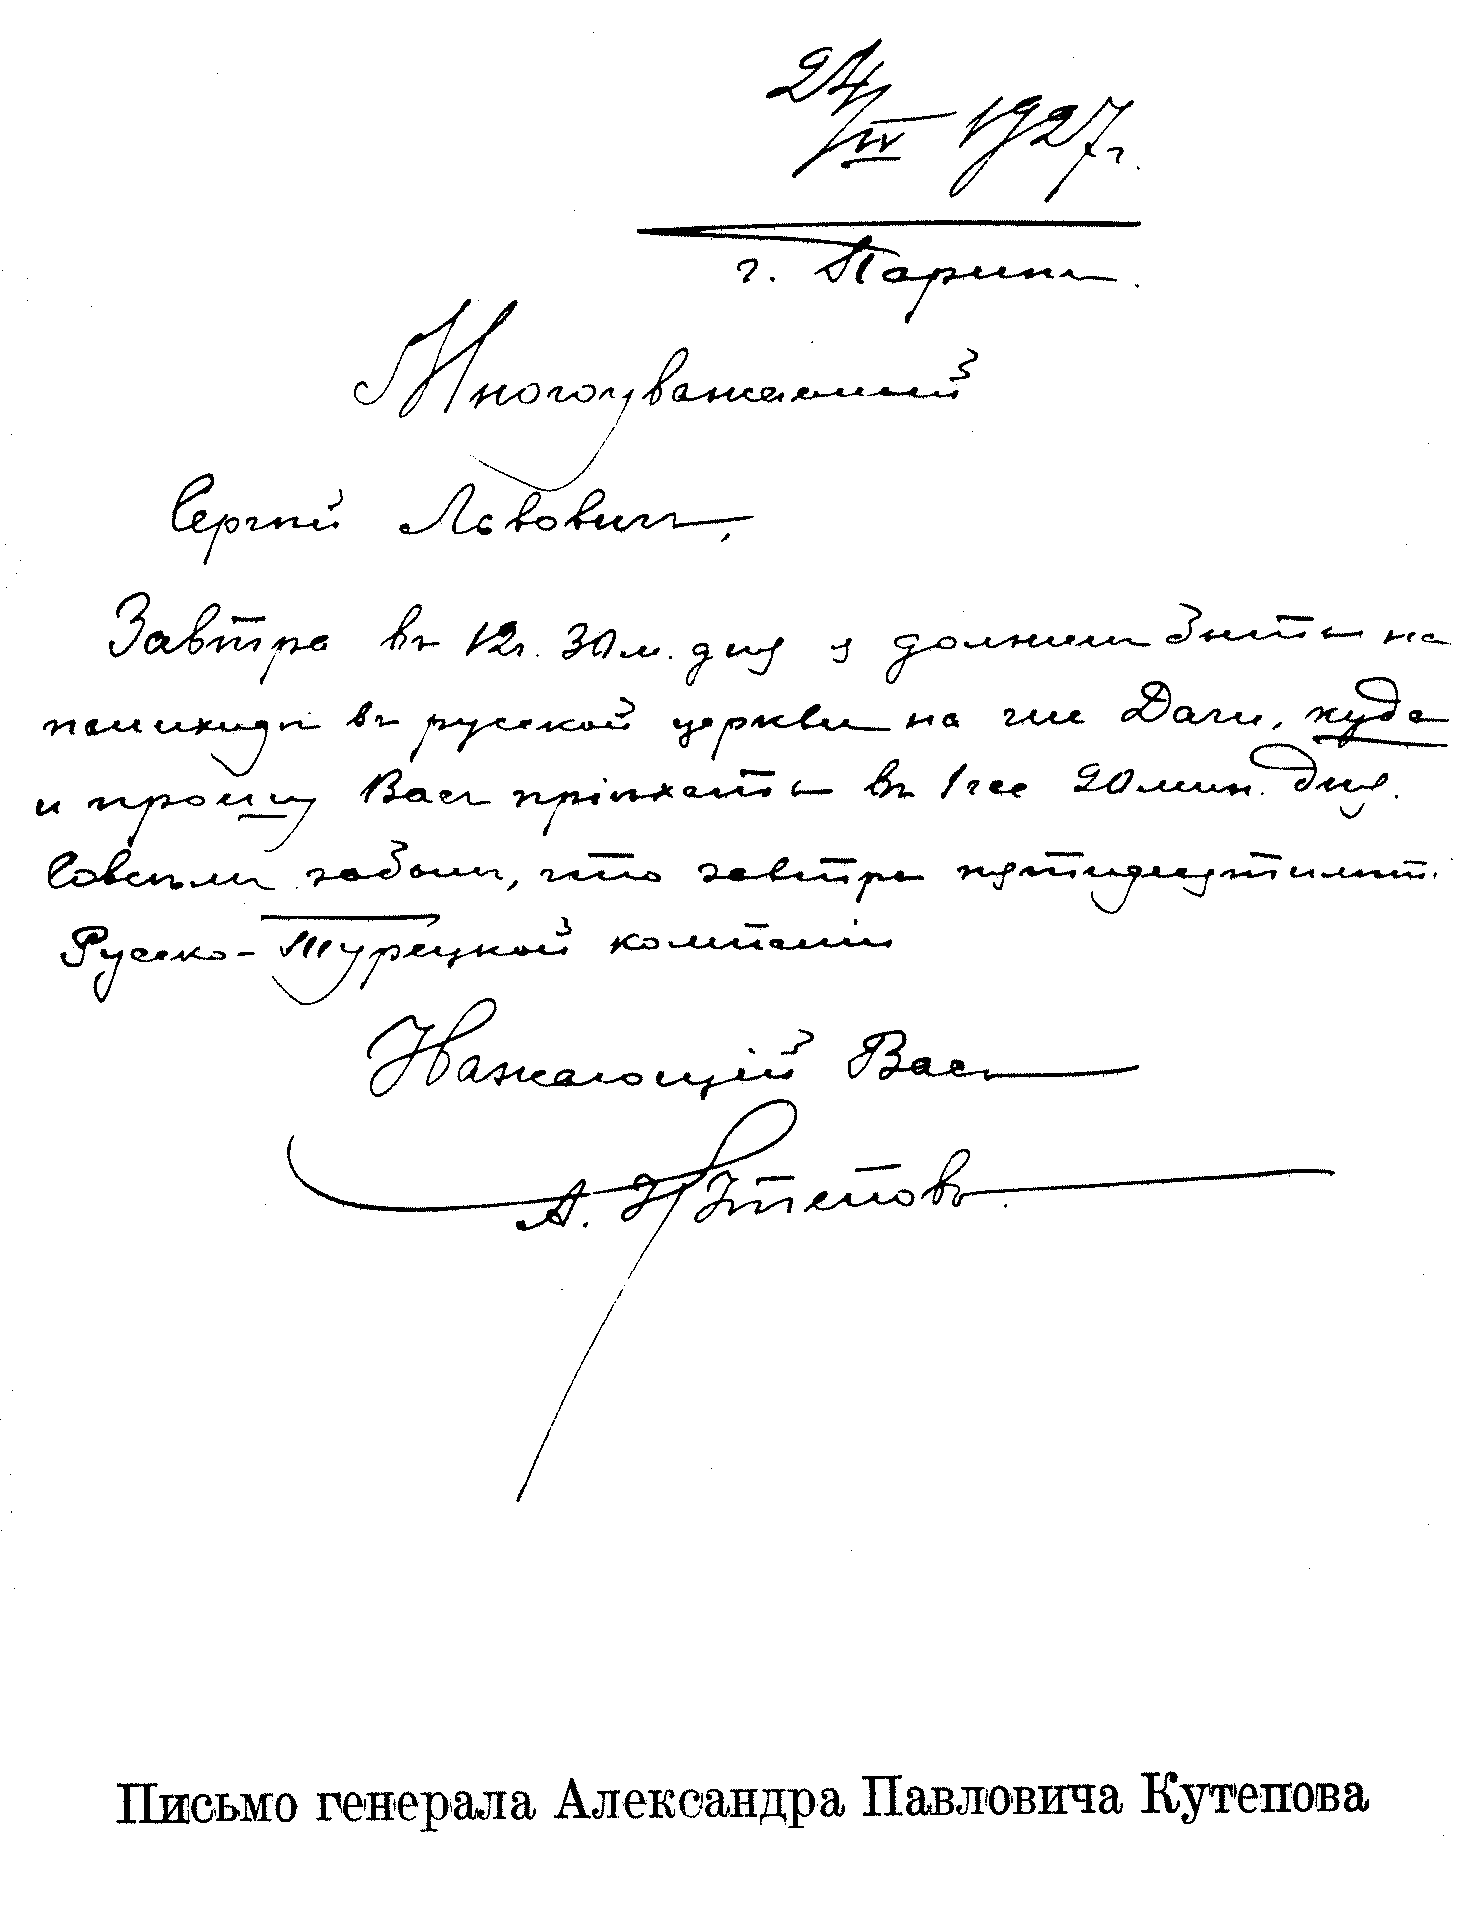 24/IV 1927г.
г. Парижъ.
Многоуважаемый
Сергѣй Львовичъ,
Завтра въ 12ч. 30м. дня я долженъ быть на
панихидѣ въ русской церкви на rue Дарю, куда
и прошу Васъ пріѣхать въ 1 час 20 мин. дня.
Совсѣмъ забылъ, что завтра пятидесятилѣт.
Русско-Турецкой компаніи
Уважающій Васъ
А. Кутеповъ
Письмо генерала Александра Павловича Кутепова